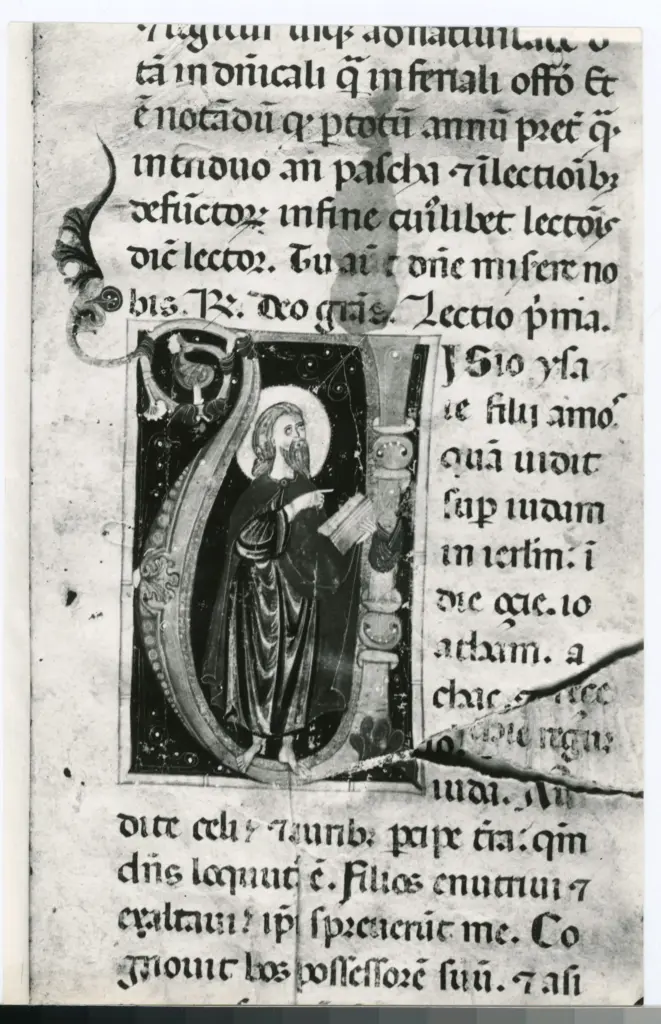 tā in dn̄icali q̄ in feriali offō Et
ē notādū qꝫ p totū annū pret̄ q̄
in triduo an̄ pascha ⁊ ī lectioībꝫ
defūctoꝝ in fine cuiꝰlibet lectōis
dic̄ lector. Tu aut̄ dn̄e miserere no
bis. R̄. Deo grās. Lectio p̄ma.
Visio ysa
ie filij amos
quā uidit
sup iudam
in ierlm̄: ī
die oçie. io
atham. a
chaç. ⁊
regū
iuda. Au
dite celi ⁊ auribꝫ pcipe tr̄a: qm̄
dn̄s locutꝰ ē. Filios enutriui ⁊
exaltaui: ip̄i spreuerūt me. Co
gnouit bos possessorē suū. ⁊ asi